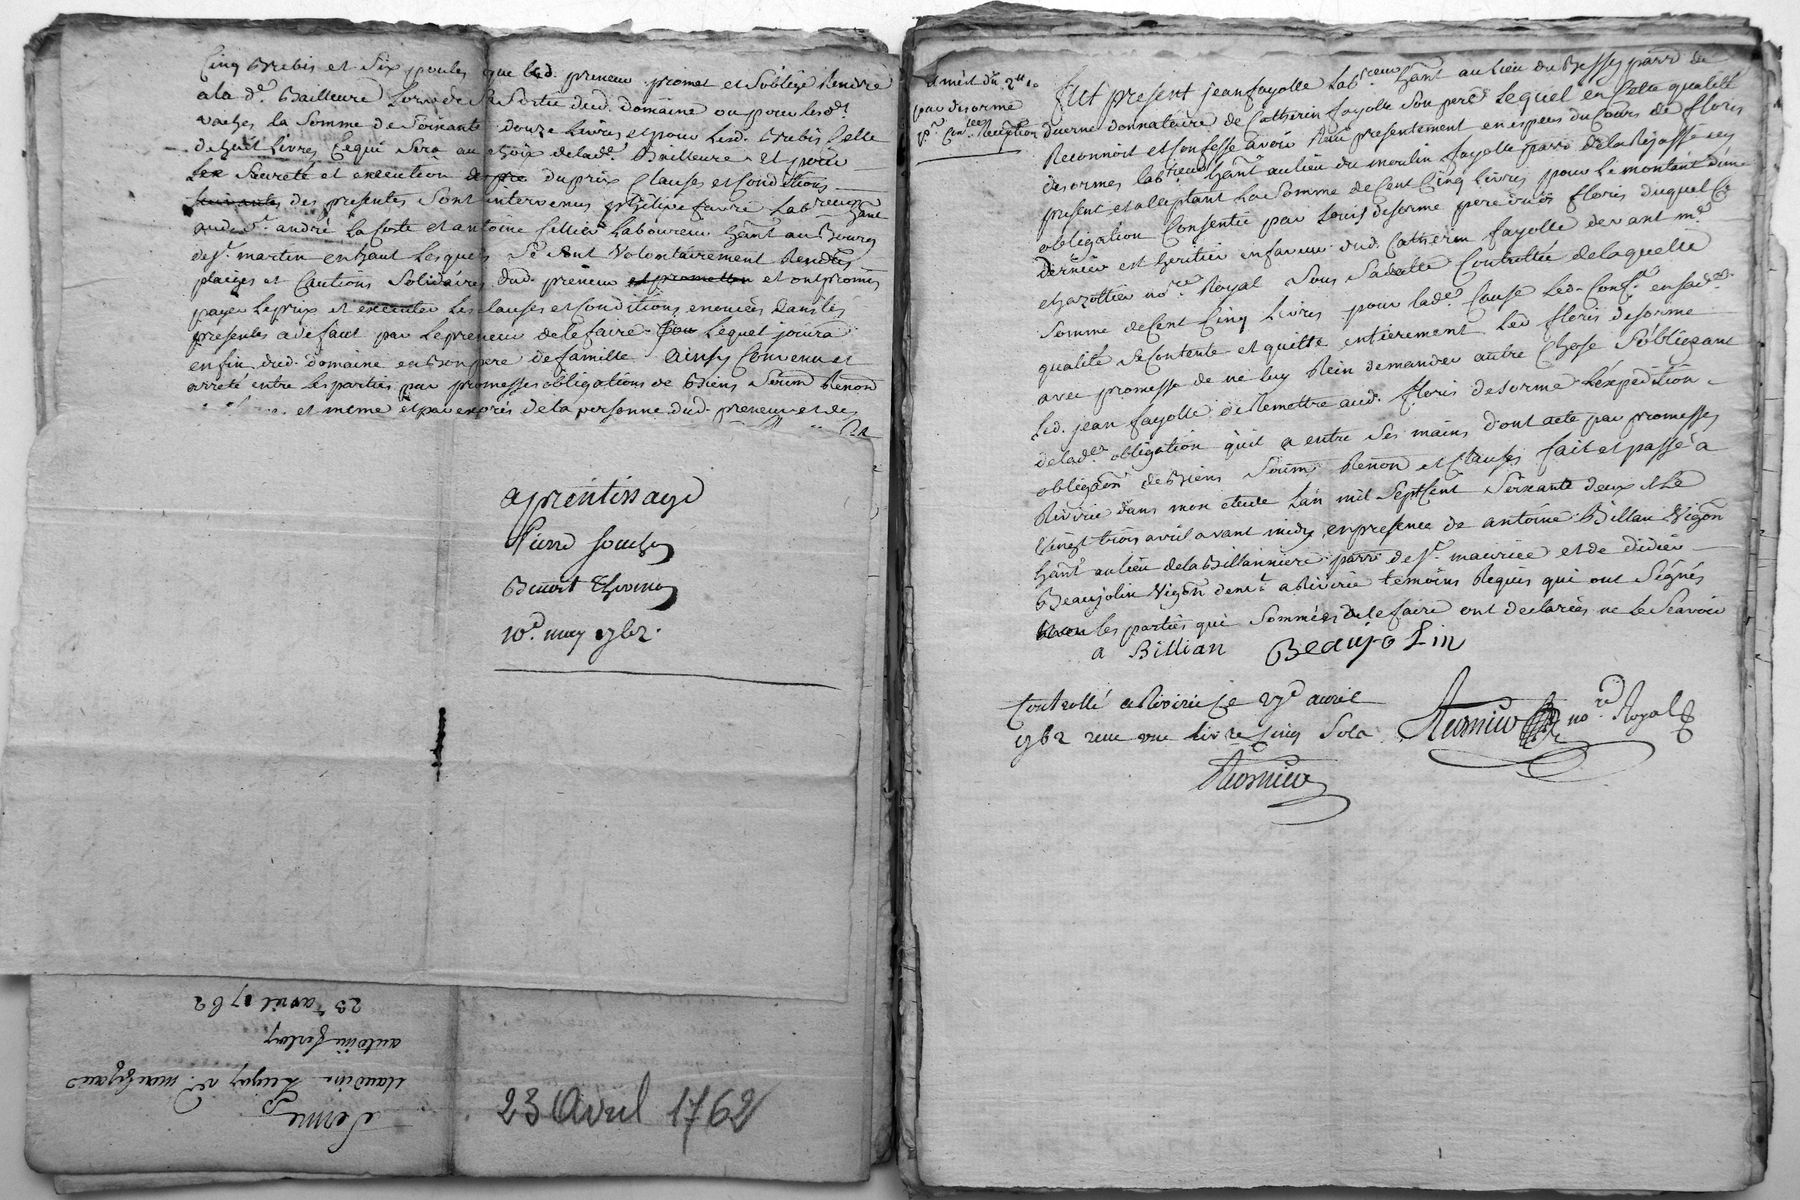 Cinq Brebis et Six poules que led. preneur promet et s'oblige Rendre
a la de. Bailleure Lors de Sa Sortie dud. domaine ou pour lesd.
vaches la Somme de Soixante douze Livres et pour Lesd. Brebis Celle
de huit Livres Ce qui Sera au choix de lad. Bailleure et pour
Seureté et execution du prix Clauses et Conditions
suivantes des presentes Sont intervenus philipe favre Lab
aud. St. andré la Coste et antoine Cellier Laboureur hant au Bourg
de St. martin en haut Lesquels Se Sont Volontairement Rendus
pleiges et Cautions Solidaires dud. preneur et prometten et ont promis
payer Le prix et executer Les clauses et Conditions enoncées dans les
presentes a defaut par Le preneur de le faire Lequel jouira
enfin dud. domaine en Bon pere de famille ainsy Convenu et
arreté entre les parties par promesses obligations de Biens Soum Renon
et meme et par exprés de la personne dud. preneur et des
aprentissage
Pierre
Benoit Thevenon
10e. may 1762.
23 avril 1762
antoine
claudine
ferme
23 Avril 1762
du 2
par desorme
Reception
fut present jean fayolle Labreur hant au lieu du Bessy parre de
duerne donnataire de Catherin fayolle Son pere Lequel en Cette qualité
Reconnoit et Confesse avoir Receu presentement en especes du Cours de floris
desormes lab hant au lieu du moulin fayolle parre de la Rajasse icy
present et acceptant La Somme de Cent Cinq Livres pour Le montant d'une
obligation Consentie par Louis desorme pere dud. floris duquel Ce
dernier est heritier en faveur dud. Catherin fayolle devant me.
chazottier nore. Royal Sous Sa datte Controllée de laquelle
Somme de Cent Cinq Livres pour lade. Cause Led. Conf. en sad.
qualité Se Contente et quitte entierement Led floris desorme
avec promesse de ne luy Rien demander autre Chose S'obligeant
Led. jean fayolle de Remettre aud. floris desorme L'expedition
de lade. obligation qu'il a entre Ses mains dont acte par promesses
obligaon de Biens Soum Renon et Clauses fait et passé a
Riverie dans mon etude L'an mil Sept Cent Soixante deux & Le
Vingt trois avril avant midy en presence de antoine Billan Vigon
hant au lieu de la Billanniere parre de St. maurice et de didier
Beaujolin Vigon demt. a Riverie temoins Requis qui ont Signés
non les parties qui Sommées de le faire ont declarées ne le Scavoir
a Billian Beaujolin
Controllé a Riverie Ce 27e avril
1762 receu une livre Cinq Sols
nore. Royal